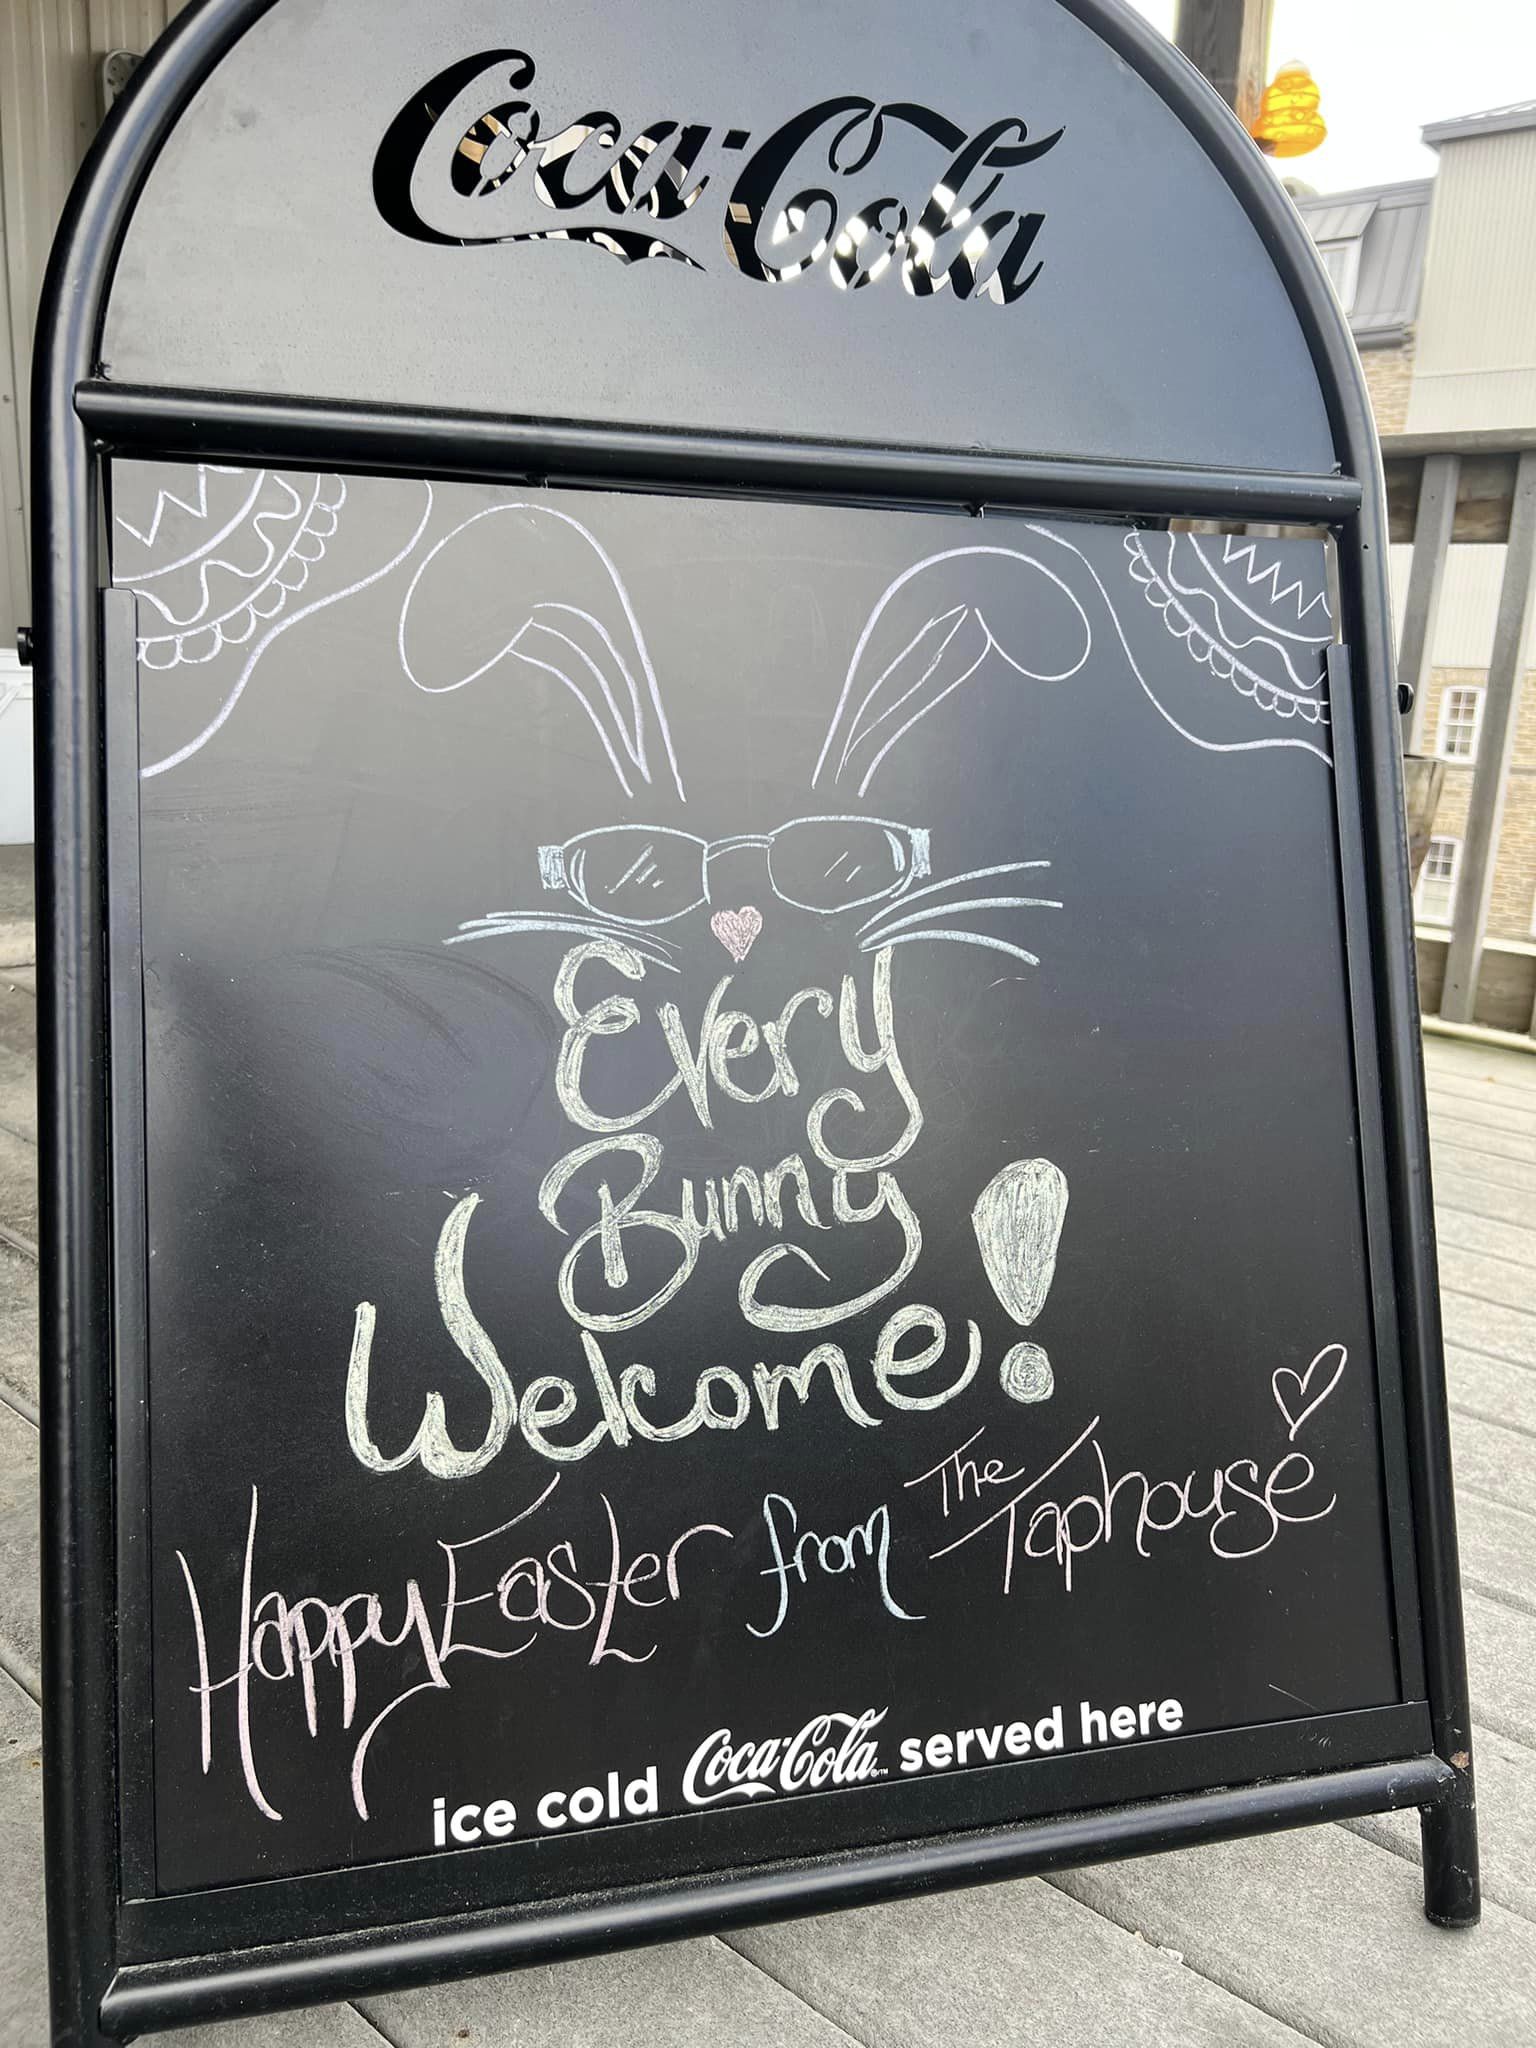 Coca-Cola
Every
Bunny
Welcome!
Happy Easter from The Taphouse
ice cold Coca-Cola served here